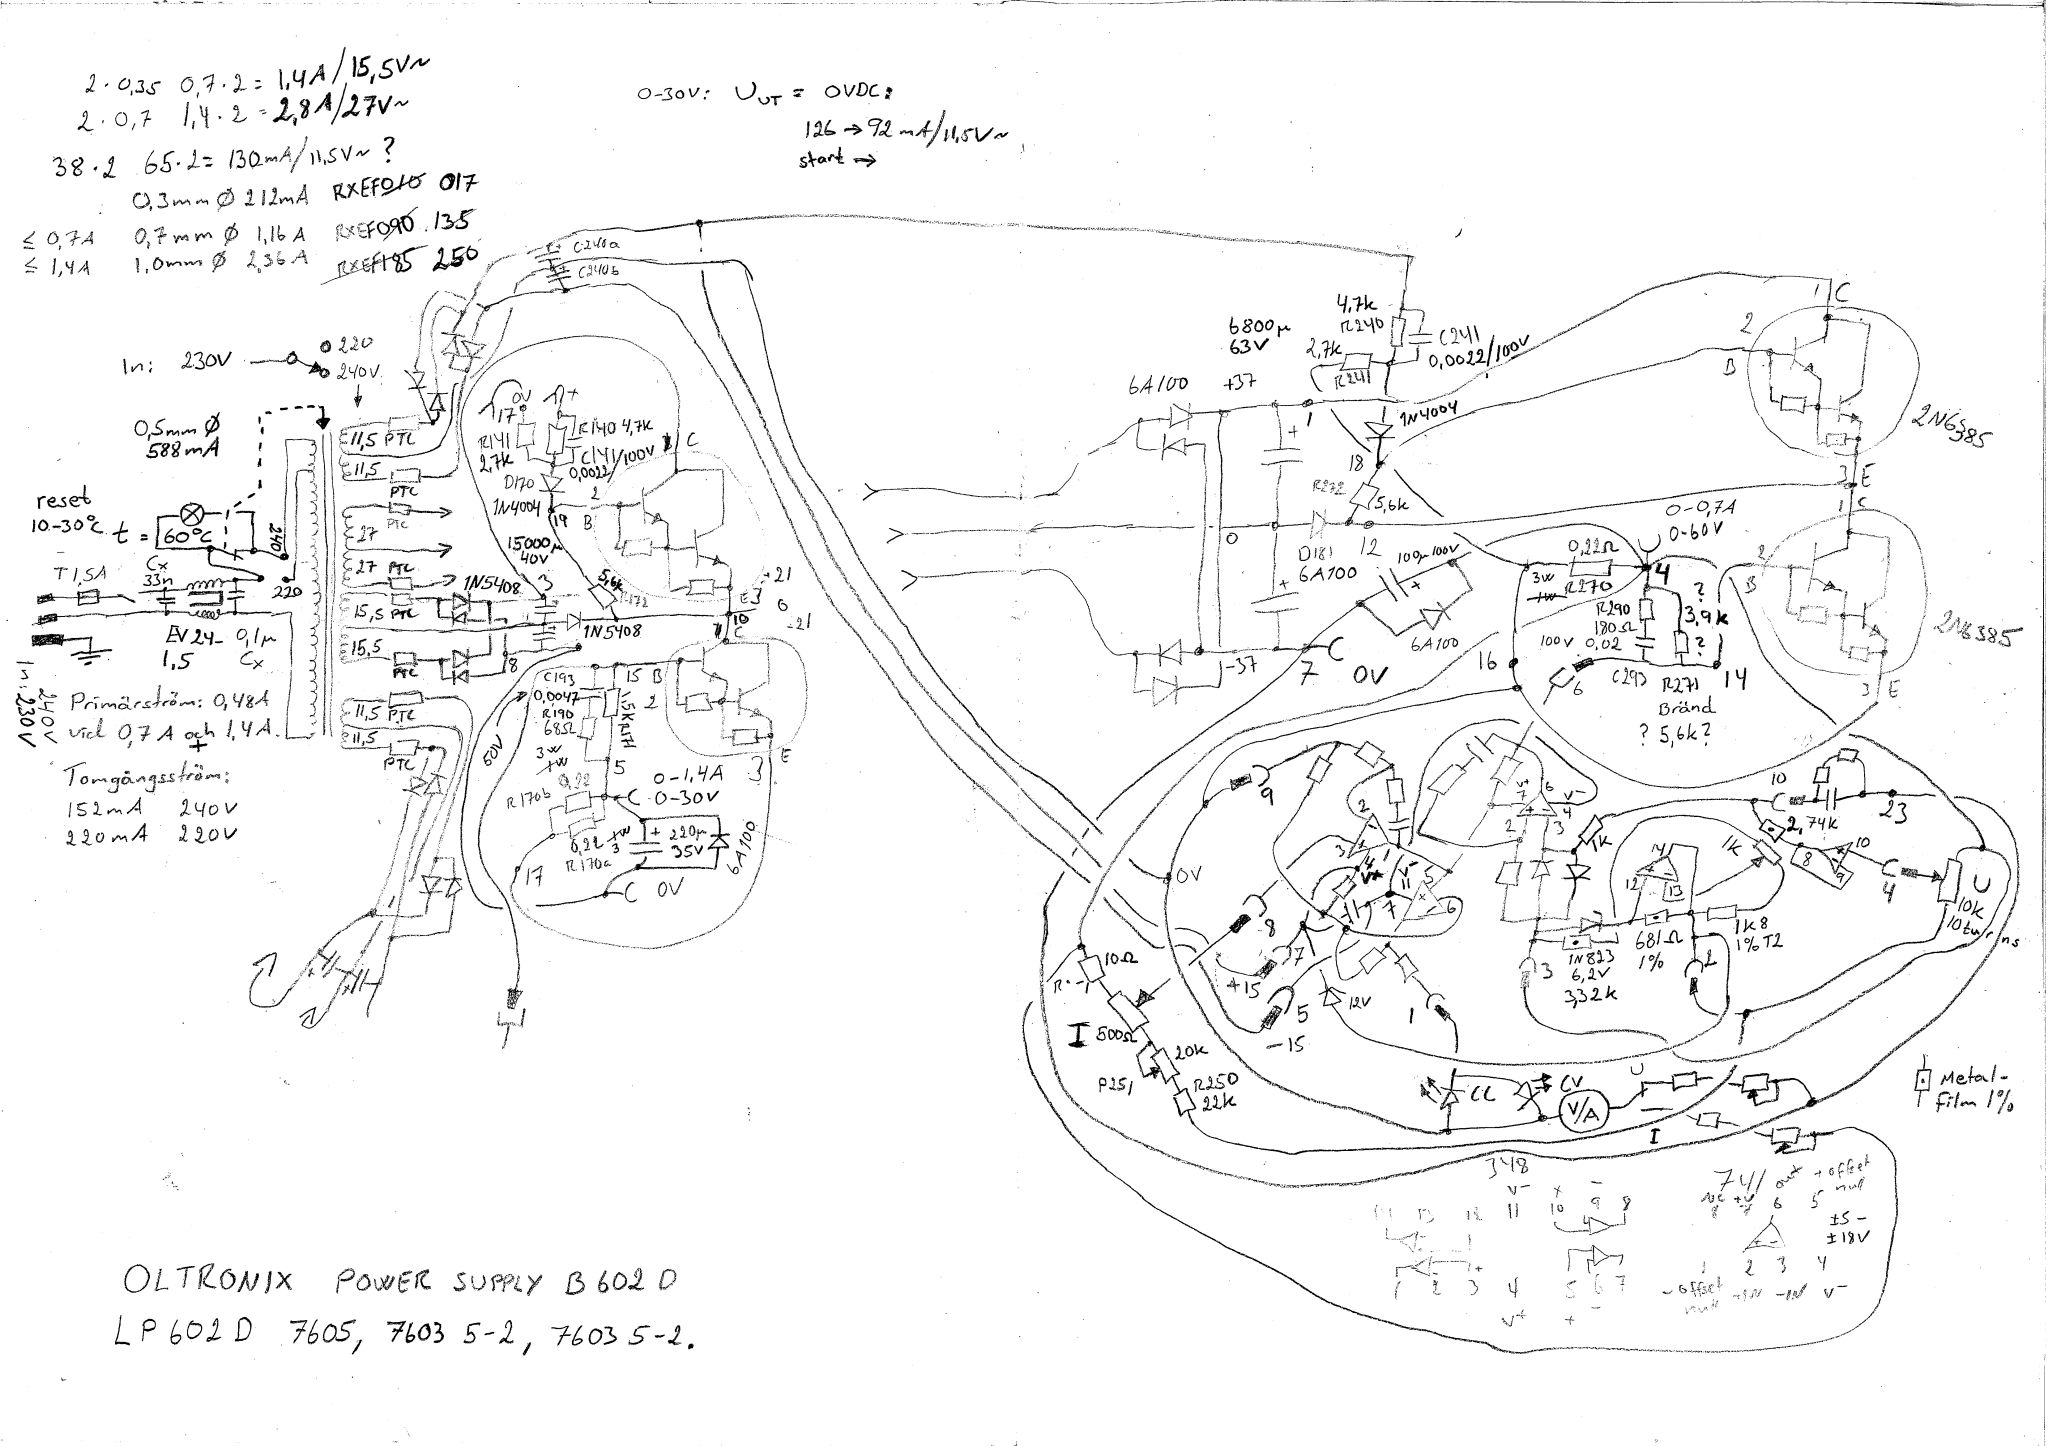 2·0,35 0,7·2= 1,4A/15,5V~
2·0,7 1,4·2=2,8A/27V~
38·2 65·2= 130mA/11,5V~?
0,3mm Ø 212mA RXEF010 017
≤ 0,7A 0,7mm Ø 1,16A RXEF090 135
≤ 1,4A 1.0mm Ø 2,36A RXEF185 250
0-30V: U UT = 0VDC:
126→92mA/11,5V~
start →
C240a
C240b
In: 230V
220
240V
0,5mm Ø
588mA
reset
10-30°C
t =
60°C
240
220
T1,5A
Cx
33n
EV24- 0,1µ
1,5 Cx
In: 230V
240V
Primärström: 0,48A
vid 0,7A och 1,4A.
+
Tomgångsström:
152mA 240V
220mA 220V
11,5 PTC
11,5
PTC
PTC
27
27 PTC
15,5 PTC
15,5
PTC
11,5 PTC
11,5
PTC
17
0V
+
R141
2,7k
R140 4,7k
C141
0,0022/100V
1 C
D170
1N4004
19
2
B
15000µ
40V
1N5408
3
5,6k
R172
+21
E3
0
10
-21
1N5408
8
1
C
C193
0,0047
15 B
2
1,5K R171
R190
68Ω
3W
1W
50V
5
0-1,4A
C 0-30V
R170b 0,22
0,22 1W
3
R170a
+ 220µ
35V
6A100
17
C 0V
3
E
6800µ
63V
4,7k
R240
C241
0,0022/100V
2,7k
R241
6A100 +37
1
1N4004
18
R272
5,6k
0
D181
6A100
12
100µ 100V
6A100
-37
7
C
0V
1 C
2
B
2N6385
3 E
1 C
0-0,7A
0-60V
0,22Ω
3W
1W
R270
4
R290
180Ω
100V 0,02
C293
?
3,9k
?
R271
Bränd
? 5,6k?
14
16
6
2
B
2N6385
3 E
9
0V
8
7
+15
5
-15
12V
1
2
3
1
4
V+
V-
11
7
5
6
V+
7
6
V-
4
2
3
1k
10
C
23
2,74k
1k
8
10
9
C
4
U
10k
10 turns
14
12
13
681Ω
1%
1k8
1% T2
1N823
6,2V
3,32k
3
2
10Ω
I
500Ω
20k
P251
R250
22k
CC
CV
V/A
U
I
Metal-
film 1%
348
V- + -
14 13 12 11 10 9 8
1 2 3 4 5 6 7
V+ + -
741 out + offset
null
NC +V 6 5
8 7
±5-
±18V
1 2 3 4
- offset
null +IN -IN V-
OLTRONIX POWER SUPPLY B602D
LP602D 7605, 7603 5-2, 7603 5-2.